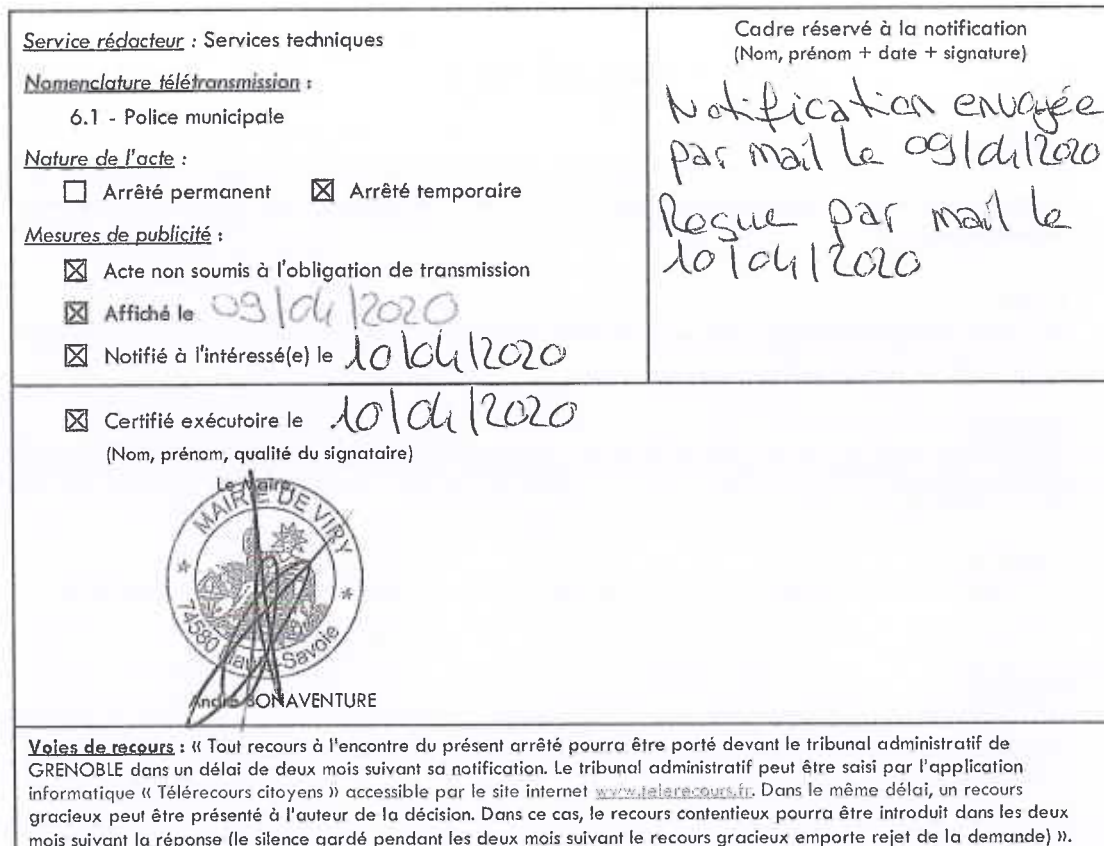 Service rédacteur : Services techniques
Nomenclature télétransmission :
6.1 - Police municipale
Nature de l'acte :
☐ Arrêté permanent ☒ Arrêté temporaire
Mesures de publicité :
☒ Acte non soumis à l'obligation de transmission
☒ Affiché le 09/04/2020
☒ Notifié à l'intéressé(e) le 10/04/2020
Cadre réservé à la notification
(Nom, prénom + date + signature)
Notification envoyée
par mail le 09/04/2020
Reçue par mail le
10/04/2020
☒ Certifié exécutoire le 10/04/2020
(Nom, prénom, qualité du signataire)
Le Maire,
MAIRIE DE VIRY
74580 Haute-Savoie
André BONAVENTURE
Voies de recours : « Tout recours à l'encontre du présent arrêté pourra être porté devant le tribunal administratif de
GRENOBLE dans un délai de deux mois suivant sa notification. Le tribunal administratif peut être saisi par l'application
informatique « Télérecours citoyens » accessible par le site internet www.telerecours.fr. Dans le même délai, un recours
gracieux peut être présenté à l'auteur de la décision. Dans ce cas, le recours contentieux pourra être introduit dans les deux
mois suivant la réponse (le silence gardé pendant les deux mois suivant le recours gracieux emporte rejet de la demande) ».